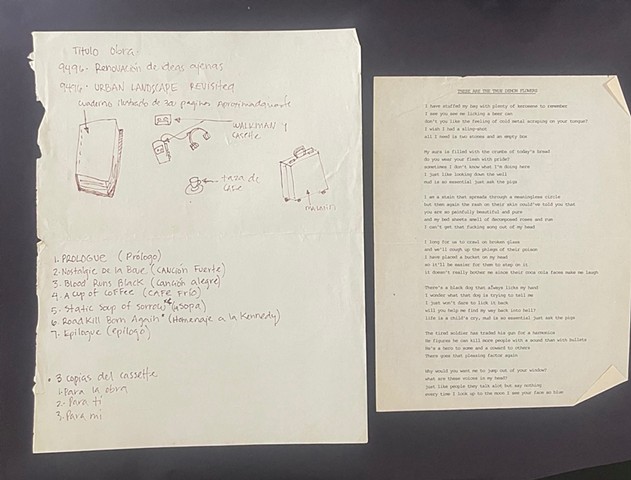 TITULO Obra
9496- Renovación de ideas ajenas
9496- URBAN LANDSCAPE REVISITED
cuaderno ilustrado de 300 paginas Aproximadamente
WALKMAN y
CASSETTE
taza de
cafe
maletin
1. PROLOGUE (Prologo)
2. Nostalgie De la Boue (CANCION Fuerte)
3. Blood Runs Black (canción alegre)
4. A cup of coffee (CAFE Frio)
5. Static soup of sorrow (sopa)
6. Road Kill Born Again (Homenaje a la Kennedy)
7. Epilogue (epilogo)
• 3 copias del cassette
1- Para la obra
2- Para ti
3- Para mi
THESE ARE THE TRUE DEMON FLOWERS
I have stuffed my bag with plenty of kerosene to remember
I see you see me licking a beer can
don't you like the feeling of cold metal scraping on your tongue?
I wish I had a
all I need is two stones and an empty box
My aura is filled with the crumbs of today's bread
do you wear your flesh with pride?
sometimes I don't know what I'm doing here
I just like looking down the well
mud is so essential just ask the pigs
I am a stain that spreads through a meaningless circle
but then again the rash on their skin could've told you that
you are so painfully beautiful and pure
and my bed sheets smell of decomposed roses and rum
I can't get that fucking song out of my head
I long for us to crawl on broken glass
and we'll cough up the phlegm of their poison
I have placed a bucket on my head
so it'll be easier for them to step on it
it doesn't really bother me since their coca cola faces make me laugh
There's a black dog that always licks my hand
I wonder what that dog is trying to tell me
I just won't dare to lick it back
will you help me find my way back into hell?
life is a child's cry, mud is so essential just ask the pigs
The tired soldier has traded his gun for a harmonica
He figures he can kill more people with a sound than with bullets
He's a hero to some and a coward to others
There goes that pleasing factor again
Why would you want me to jump out of your window?
what are these voices in my head?
just like people they talk alot but say nothing
every time I look up to the moon I see your face so blue